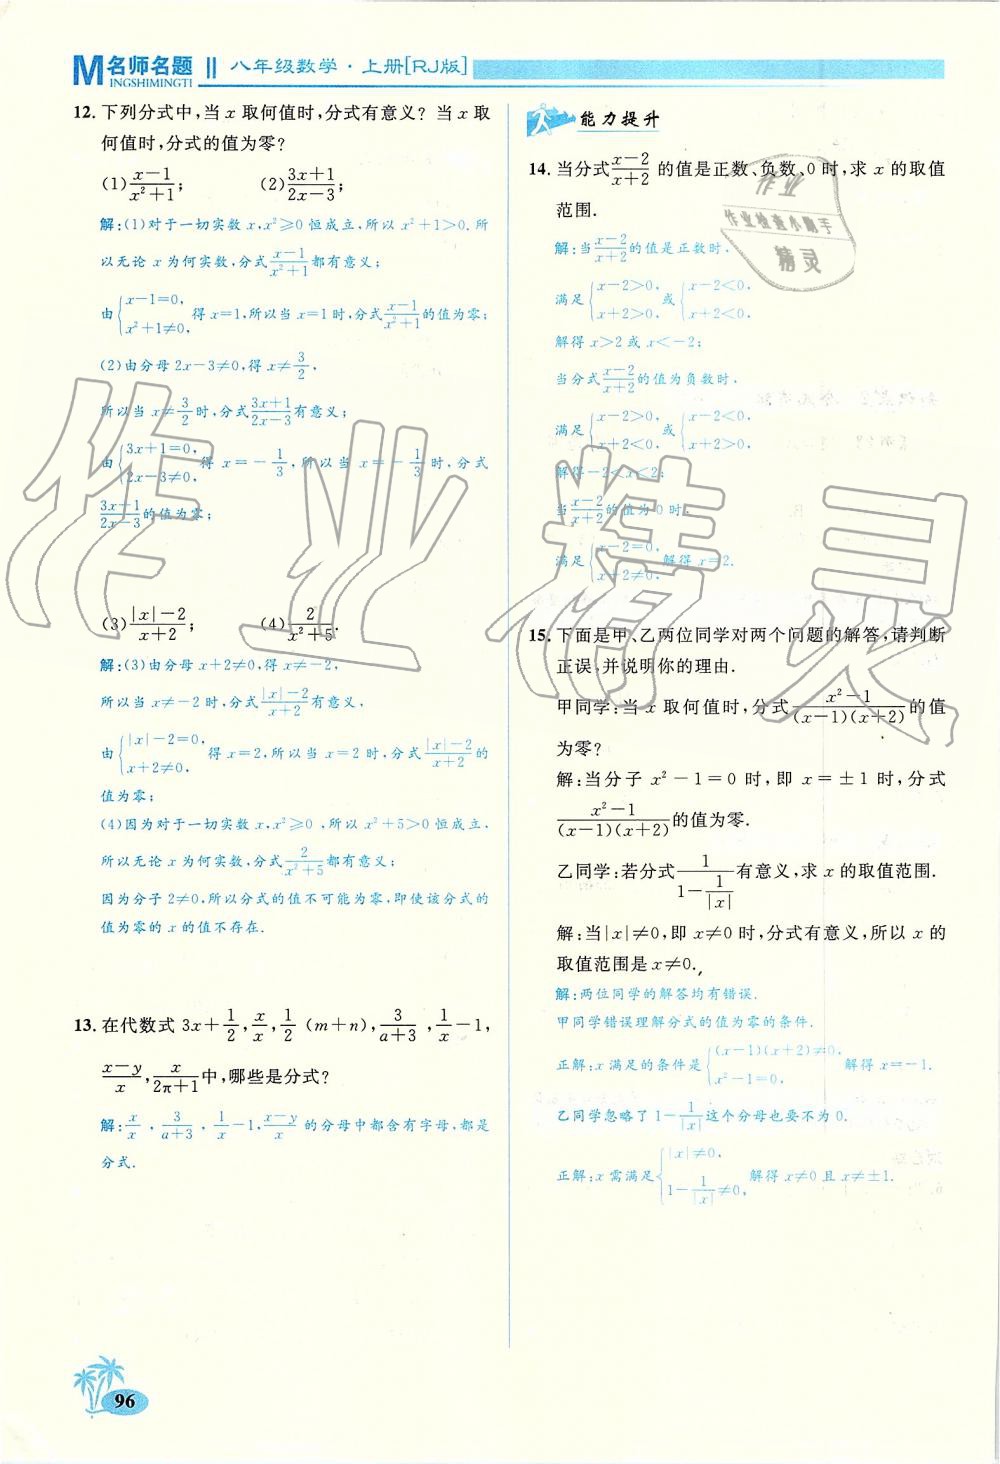 M名师名题 八年级数学·上册[RJ版]
INGSHIMINGTI
12. 下列分式中,当 x 取何值时,分式有意义? 当 x 取
何值时,分式的值为零?
(1) (x-1)/(x²+1); (2) (3x+1)/(2x-3);
解:(1)对于一切实数 x,x²≥0 恒成立,所以 x²+1>0.所
以无论 x 为何实数,分式 (x-1)/(x²+1) 都有意义;
由{x-1=0, x²+1≠0, 得 x=1,所以当 x=1 时,分式 (x-1)/(x²+1) 的值为零;
(2)由分母 2x-3≠0,得 x≠3/2,
所以当 x≠3/2 时,分式 (3x+1)/(2x-3) 有意义;
由{3x+1=0, 2x-3≠0, 得 x=-1/3,所以当 x=-1/3 时,分式
(3x+1)/(2x-3) 的值为零;
(3) (|x|-2)/(x+2); (4) 2/(x²+5).
解:(3)由分母 x+2≠0,得 x≠-2,
所以当 x≠-2 时,分式 (|x|-2)/(x+2) 有意义,
由{|x|-2=0, x+2≠0, 得 x=2,所以当 x=2 时,分式 (|x|-2)/(x+2) 的
值为零;
(4)因为对于一切实数 x,x²≥0,所以 x²+5>0 恒成立,
所以无论 x 为何实数,分式 2/(x²+5) 都有意义;
因为分子 2≠0,所以分式的值不可能为零,即使该分式的
值为零的 x 的值不存在.
13. 在代数式 3x+1/2, x/x, 1/2 (m+n), 3/(a+3), 1/x-1,
(x-y)/x, x/(2π+1) 中,哪些是分式?
解: x/x, 3/(a+3), 1/x-1, (x-y)/x 的分母中都含有字母,都是
分式.
能力提升
14. 当分式 (x-2)/(x+2) 的值是正数、负数、0 时,求 x 的取值
范围.
解:当 (x-2)/(x+2) 的值是正数时,
满足{x-2>0, x+2>0, 或{x-2<0, x+2<0,
解得 x>2 或 x<-2;
当分式 (x-2)/(x+2) 的值为负数时,
满足{x-2>0, x+2<0, 或{x-2<0, x+2>0,
解得-2<x<2;
当 (x-2)/(x+2) 的值为 0 时,
满足{x-2=0, x+2≠0, 解得 x=2.
15. 下面是甲、乙两位同学对两个问题的解答,请判断
正误,并说明你的理由.
甲同学:当 x 取何值时,分式 (x²-1)/((x-1)(x+2)) 的值
为零?
解:当分子 x²-1=0 时,即 x=±1 时,分式
(x²-1)/((x-1)(x+2)) 的值为零.
乙同学:若分式 1/(1-1/|x|) 有意义,求 x 的取值范围.
解:当|x|≠0,即 x≠0 时,分式有意义,所以 x 的
取值范围是 x≠0.
解:两位同学的解答均有错误.
甲同学错误理解分式的值为零的条件.
正解:x 满足的条件是{(x-1)(x+2)≠0, x²-1=0, 解得 x=-1.
乙同学忽略了 1-1/|x| 这个分母也要不为 0.
正解:x 需满足{|x|≠0, 1-1/|x|≠0, 解得 x≠0 且 x≠±1.
作业
作业检查小助手
精灵
作业精灵
96